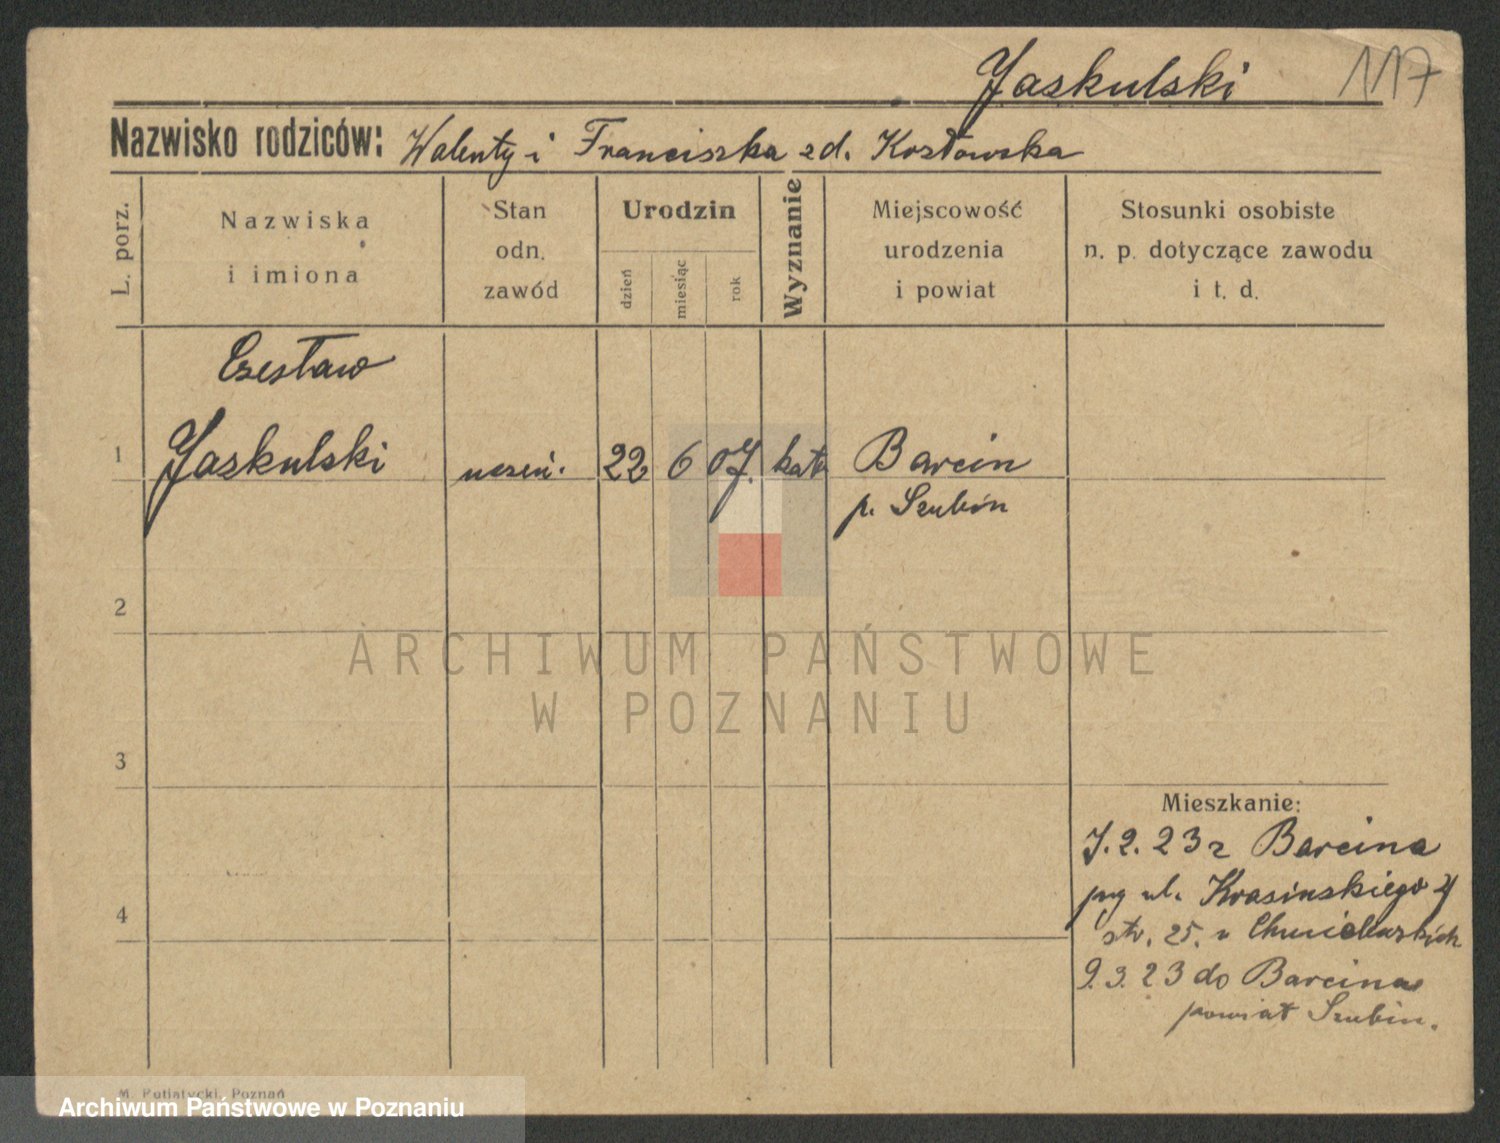 Jaskulski 117
Nazwisko rodziców: Walenty i Franciszka zd. Kozłowska
L. porz.
Nazwiska
i imiona
Stan
odn.
zawód
Urodzin
dzień
miesiąc
rok
Wyznanie
Miejscowość
urodzenia
i powiat
Stosunki osobiste
n. p. dotyczące zawodu
i t. d.
Czesław
1 Jaskulski uczeń. 22 6 07. kat Barcin
p. Szubin
2
3
4
Mieszkanie:
7.2.23 z Barcina
przy ul. Krasińskiego 4
str. 25. u
9.3.23 do Barcina
powiat Szubin.
ARCHIWUM PAŃSTWOWE
W POZNANIU
M. Putiatycki, Poznań
Archiwum Państwowe w Poznaniu